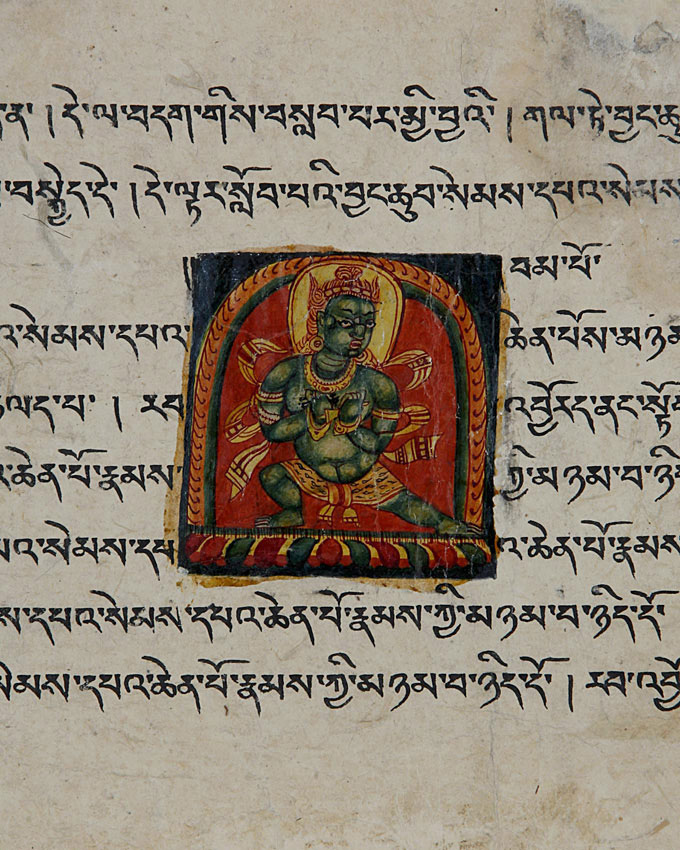 ན་ །དེ་ལ་བདག་གིས་བསླབ་པར་མྱི་བྱའི་ །གལ་ཏེ་བྱང་ཆུ
བསྐྱེད་དེ་ །དེ་ལྟར་སློབ་པའི་བྱང་ཆུབ་སེམས་དཔའ་སེམས
བམ་པོ་
འ་སེམས་དཔའ་ ཆེན་པོས་མ་ཉམ
ལད་པ་ །རབ འབྱོརད་ནང་སྟོ
ཆེན་པོ་རྣམས་ ཀྱི་མ་ཉམ་བ་ཉིད
པའ་སེམས་དཔ འ་ཆེན་པོ་རྣམས
ས་དཔའ་སེམས་དཔའ་ཆེན་པོ་རྣམས་ཀྱི་མ་ཉམ་བ་ཉིད་དོ་
སེམས་དཔའ་ཆེན་པོ་རྣམས་ཀྱི་མ་ཉམ་བ་ཉིད་དོ་ །རབ་འབྱོ